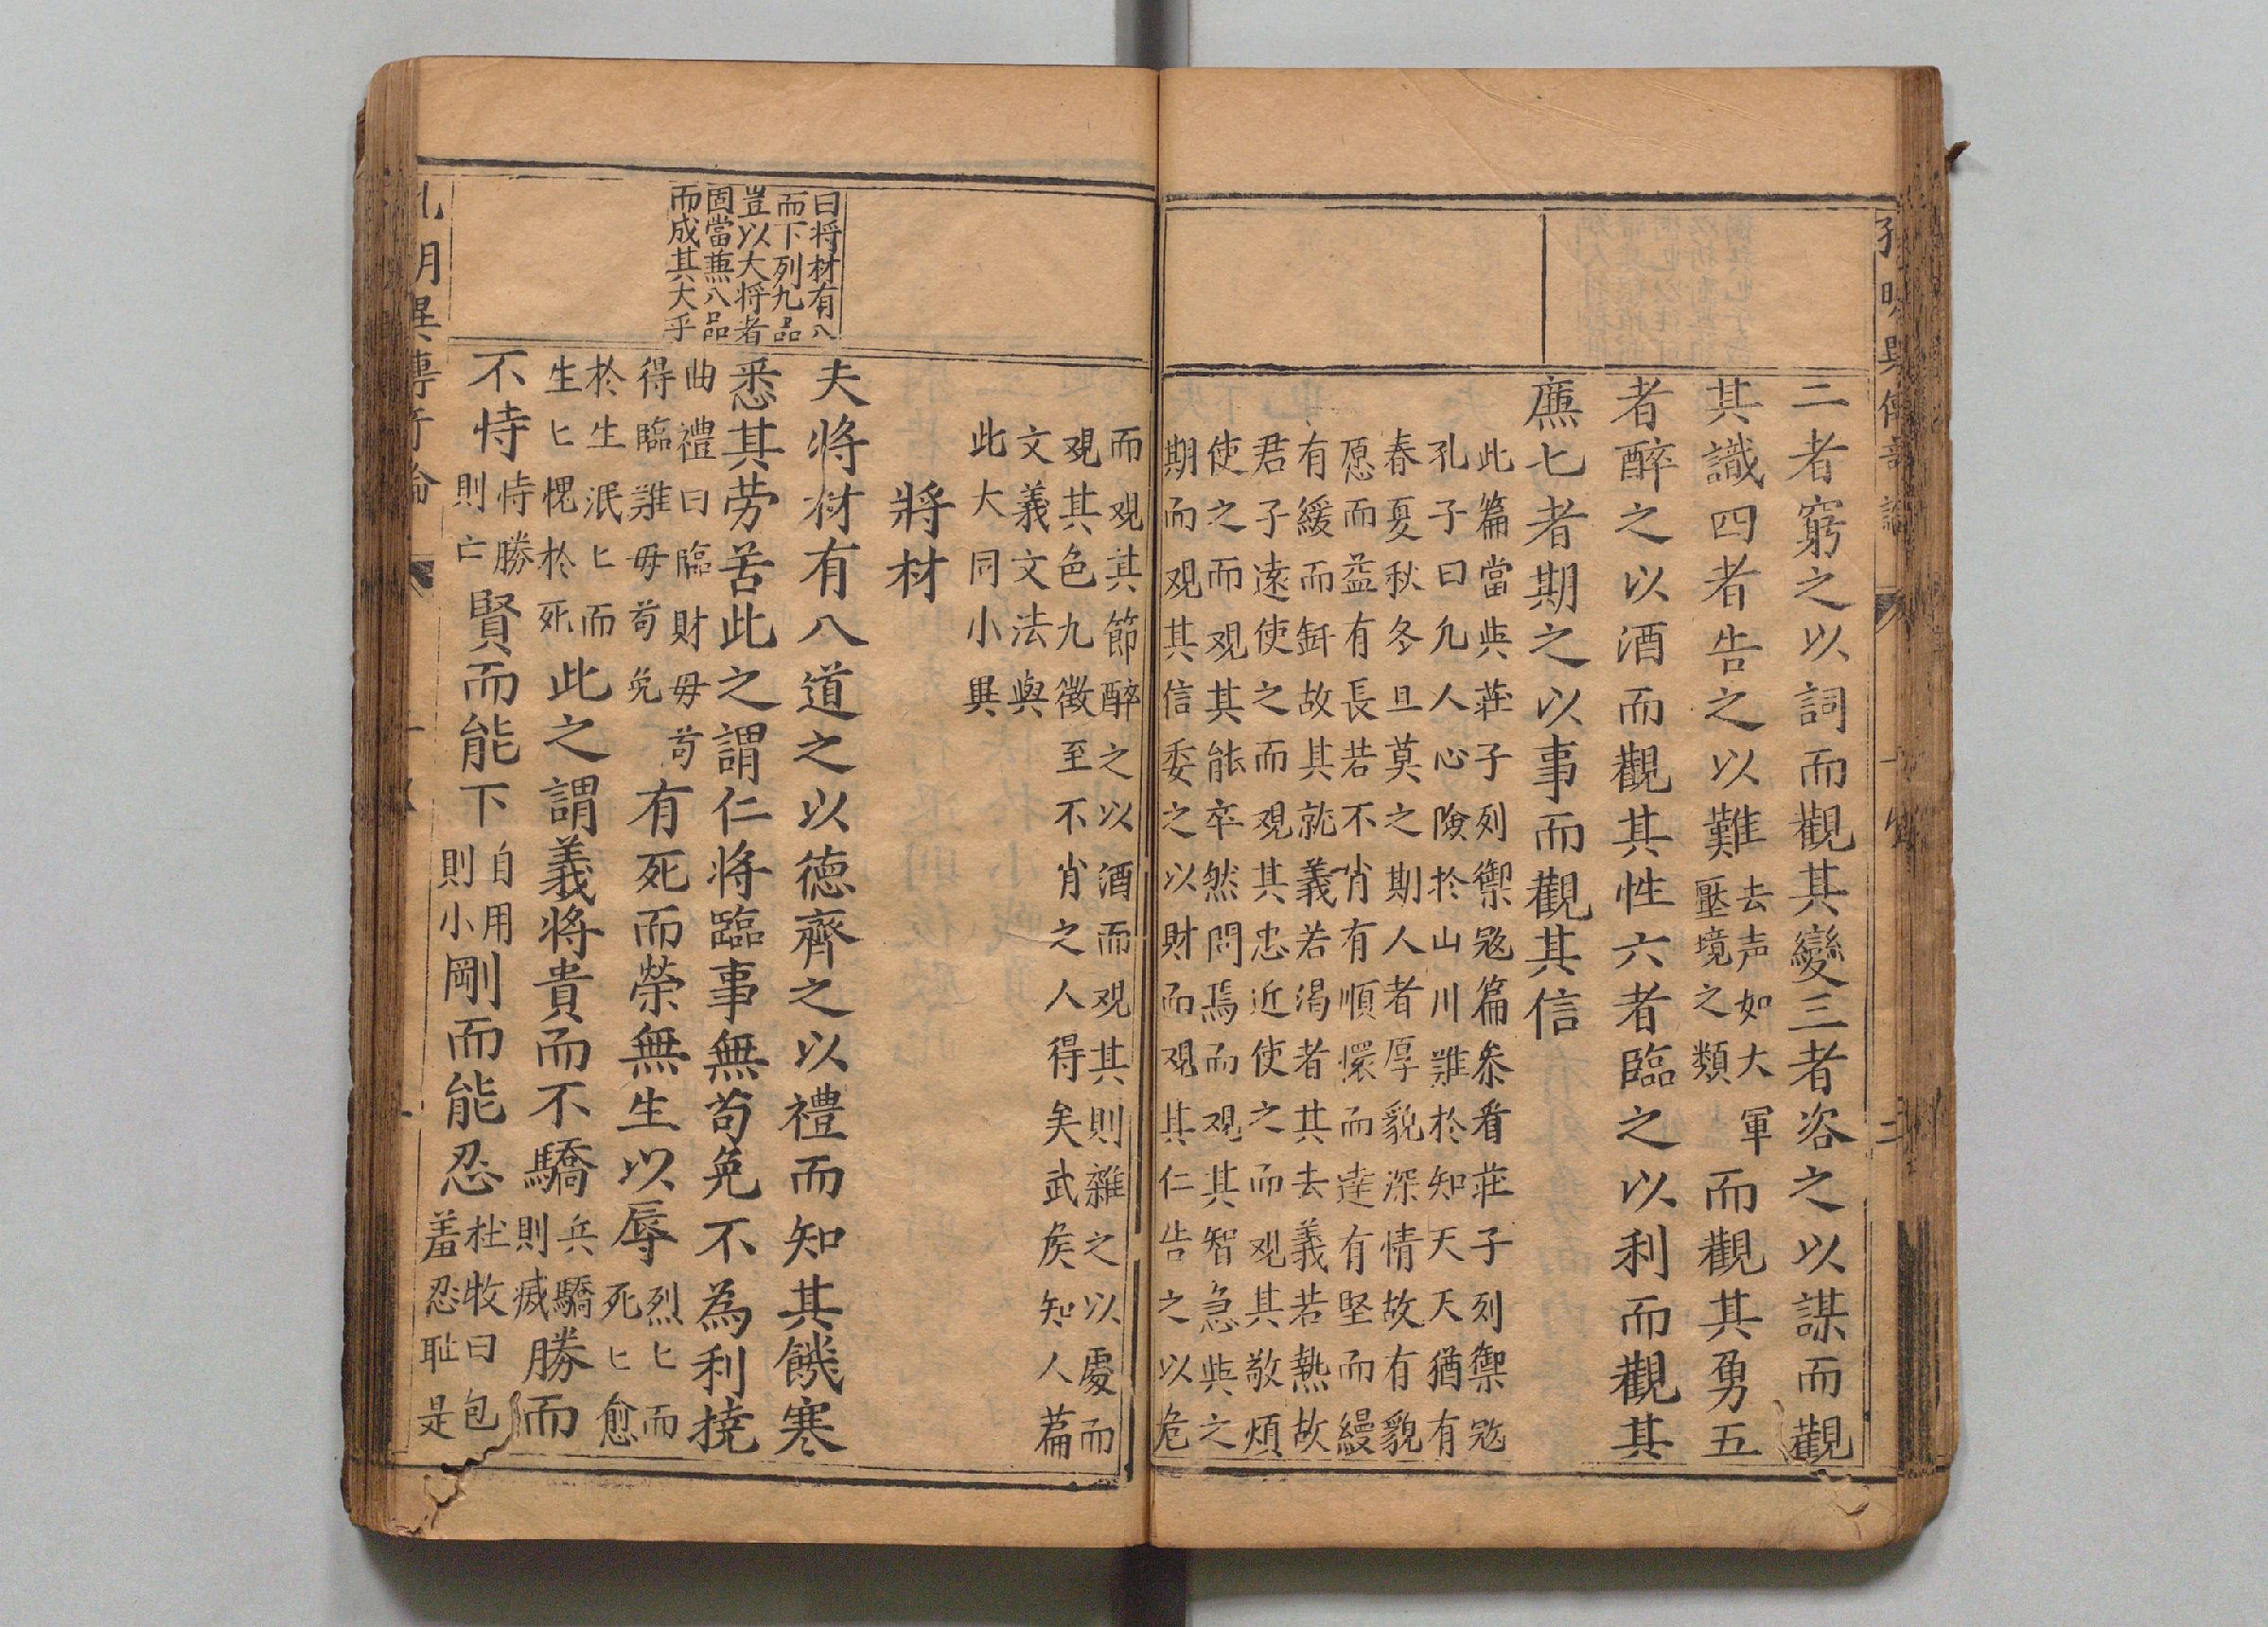 二者窮之以詞而觀其變三者咨之以謀而觀
其識四者告之以難去声如大軍壓境之類而觀其勇五
者醉之以酒而觀其性六者臨之以利而觀其
廉七者期之以事而觀其信
此篇當與莊子列禦寇篇叅看莊子列禦寇
孔子曰凢人心險扵山川難扵知天天猶有
春夏秋冬旦莫之期人者厚貌深情故有貌
愿而益有長若不肖有順懁而達有堅而縵
有緩而釬故其就義若渴者其去義若熱故
君子遠使之而观其忠近使之而观其敬煩
使之而观其能卒然問焉而观其智急與之
期而观其信委之以財而观其仁告之以危
而观其節醉之以酒而观其則雜之以處而
观其色九徵至不肖之人得矣武矦知人萹
文義文法與
此大同小異
將材
夫將材有八道之以徳齊之以禮而知其饑寒
悉其劳苦此之謂仁将臨事無苟免不為利撓
曲禮曰臨財毋苟得臨難毋苟免有死而荣無生以辱烈匕而死匕愈
扵生泯匕而生匕愧扵死此之謂義将貴而不驕兵驕則烕勝而
不恃恃勝則亡賢而能下自用則小剛而能忍杜牧曰包羞忍耻是
曰将材有八
而下列九品
豈以大将者
固當兼八品
而成其大乎